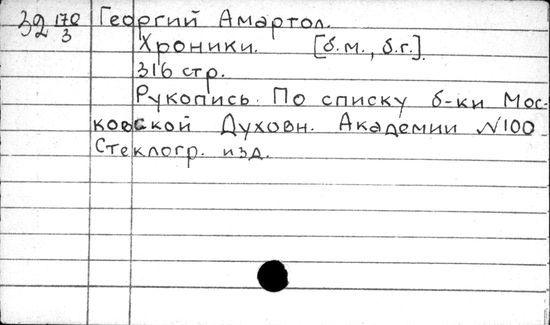 39 170/3 Георгий Амартол.
Хроники. [б.м., б.г.].
316 стр.
Рукопись. По списку б-ки Мос-
ковской Духовн. Академии №100
Стеклогр. изд.